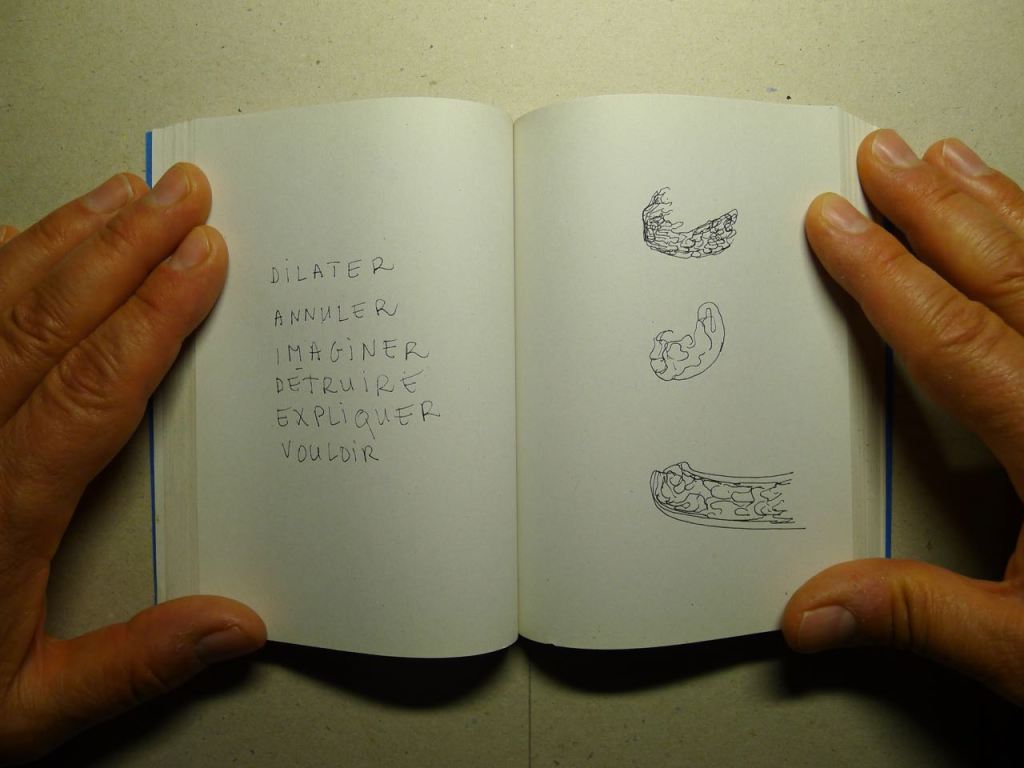 DILATER
ANNULER
IMAGINER
DÉTRUIRE
EXPLIQUER
VOULOIR